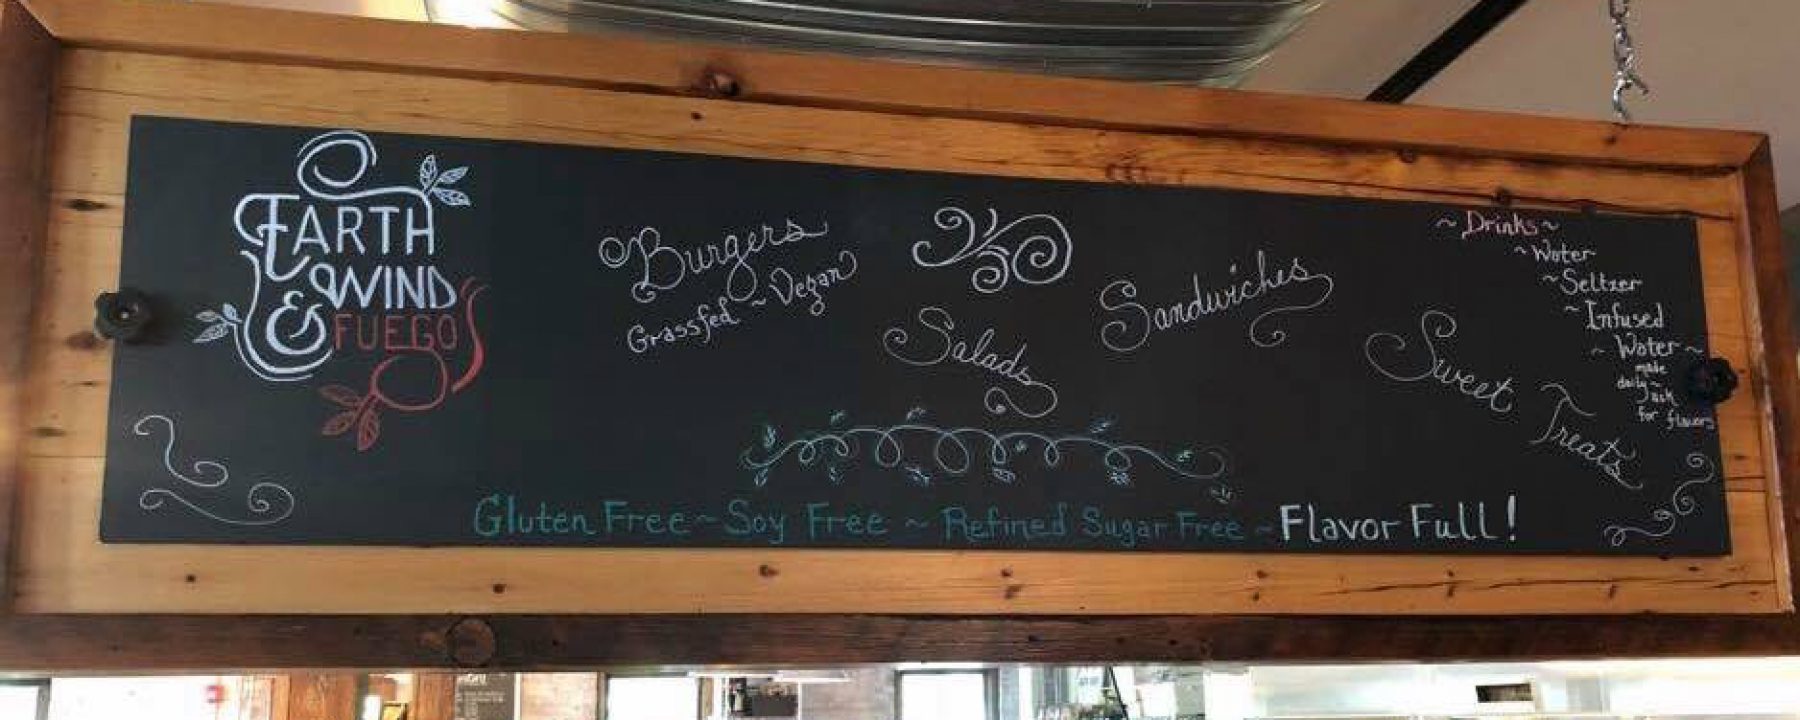 EARTH
WIND
& FUEGO
Burgers
Grassfed ~ Vegan
Salads
Sandwiches
Sweet
Treats
~ Drinks ~
~ Water
~ Seltzer
~ Infused
~ Water ~
made
daily ~
ask
for flavors
Gluten Free ~ Soy Free ~ Refined Sugar Free ~ Flavor Full!